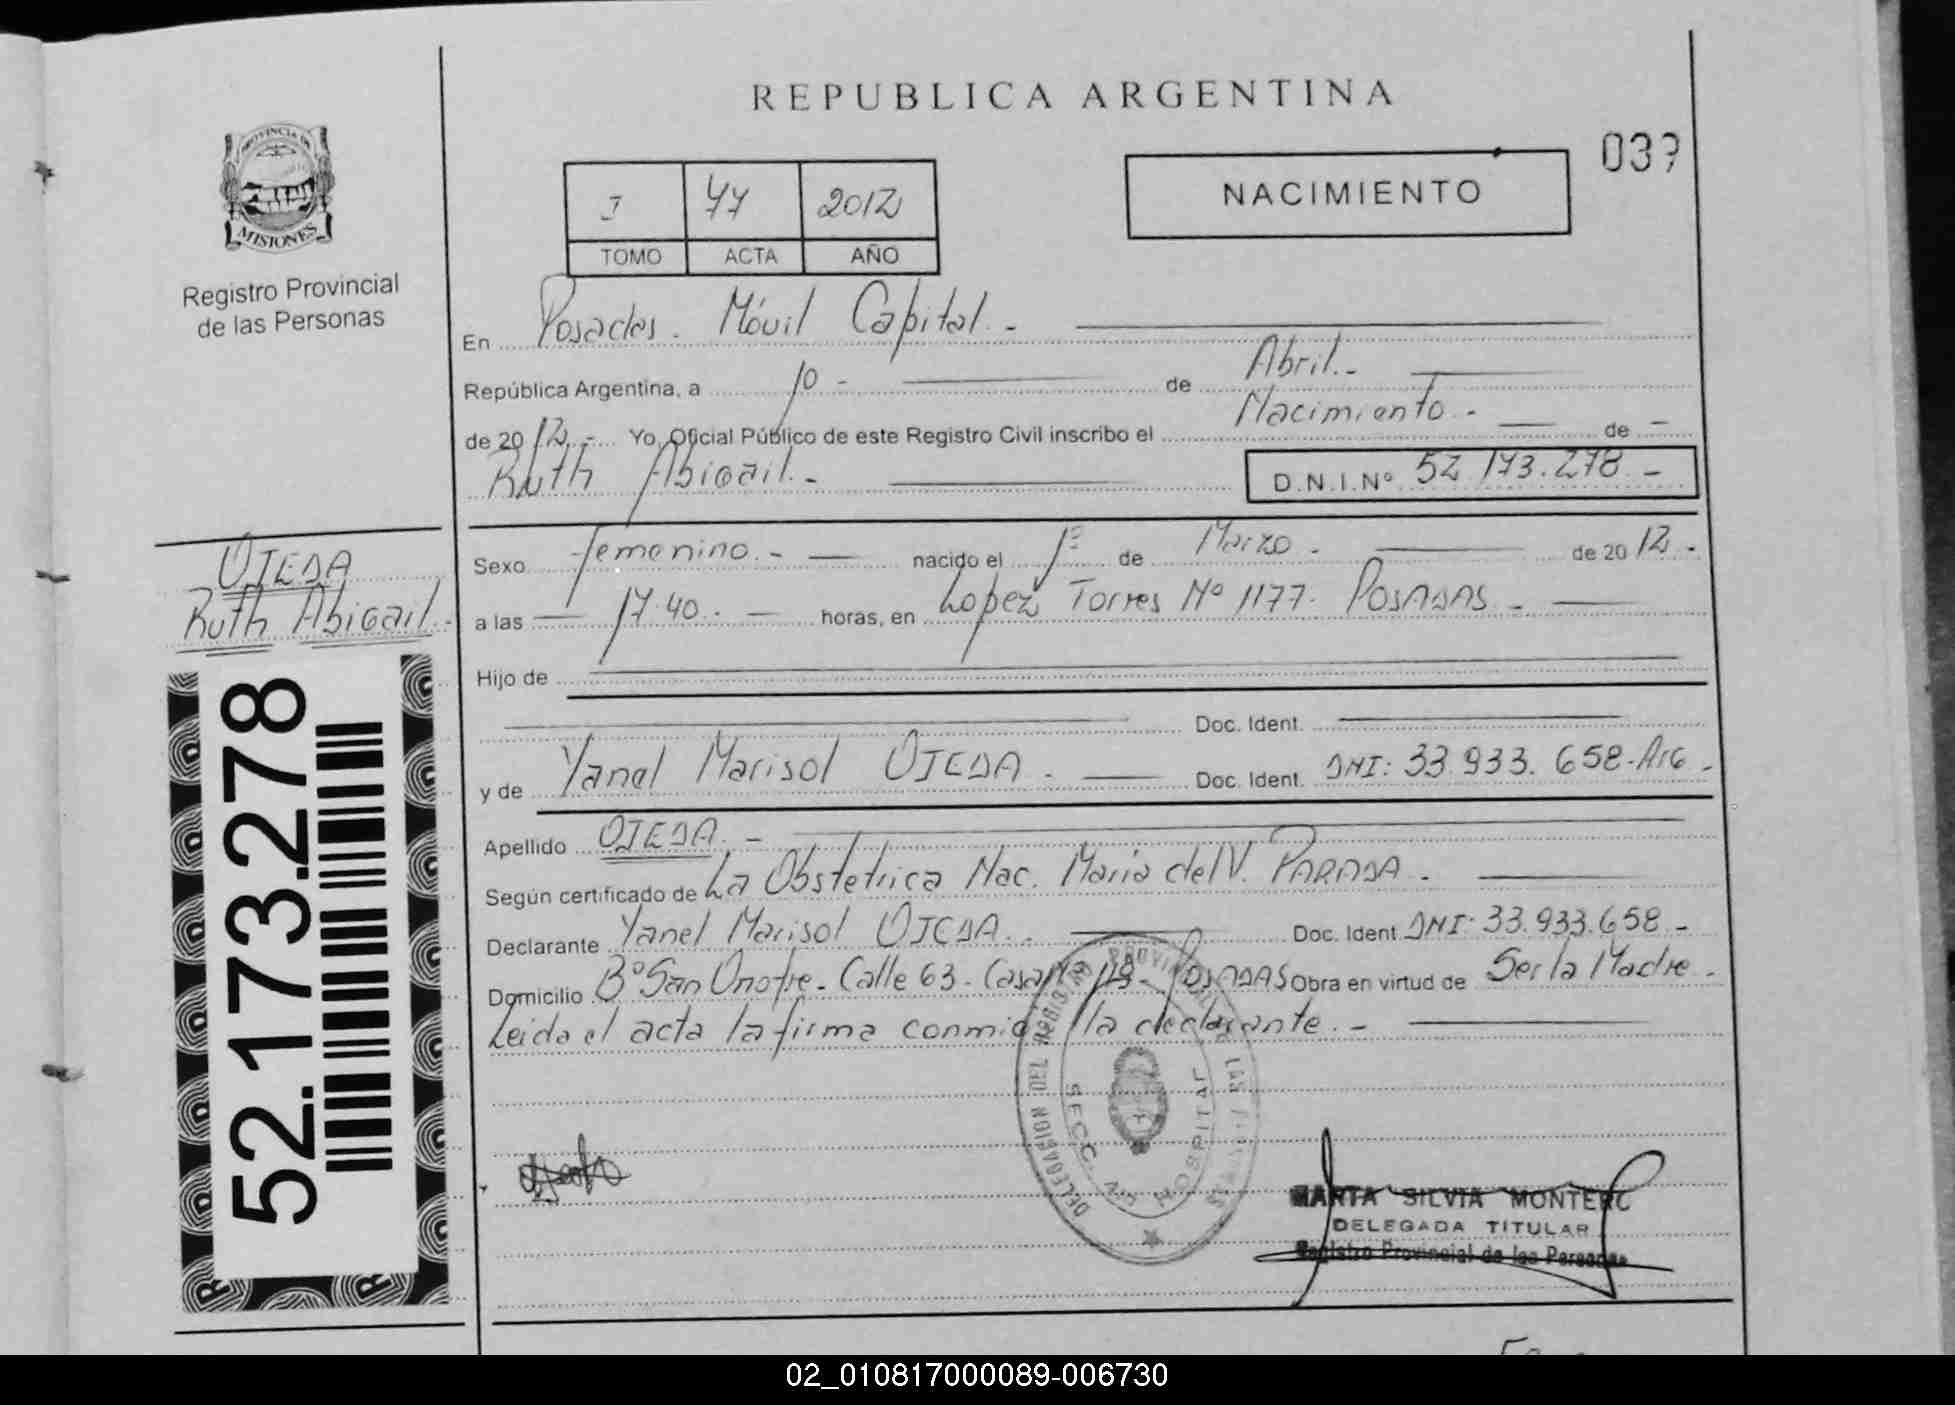 REPUBLICA ARGENTINA
039
PROVINCIA DE
MISIONES
Registro Provincial
de las Personas
I 77 2012
TOMO ACTA AÑO
NACIMIENTO
En Posadas. Móvil Capital.-
República Argentina, a 10 - de Abril.-
de 2012.- Yo, Oficial Público de este Registro Civil inscribo el Nacimiento.- de -
Ruth Abigail.- D.N.I.Nº 52 173.278 -
OJEDA
Ruth Abigail.-
52.173.278
Sexo femenino.- nacido el 1º de Marzo. de 2012.-
a las 17.40.- horas, en Lopez Torres Nº 1177. POSADAS -
Hijo de
Doc. Ident.
y de Yanel Marisol OJEDA. Doc. Ident. DNI: 33.933.658-Arg.-
Apellido OJEDA.-
Según certificado de La Obstetrica Nac. Maria del V. PARADA.
Declarante Yanel Marisol OJEDA. Doc. Ident DNI: 33.933.658 -
Domicilio Bº San Onofre - Calle 63 - Casa Nº 119 - POSADAS Obra en virtud de Ser la Madre.
Leida el acta la firma conmigo la declarante.-
DELEGACION DEL REGISTRO PROVINCIAL DE LAS PERSONAS
SECC. HOSPITAL
MARTA SILVIA MONTERO
DELEGADA TITULAR
Registro Provincial de las Personas
02_010817000089-006730